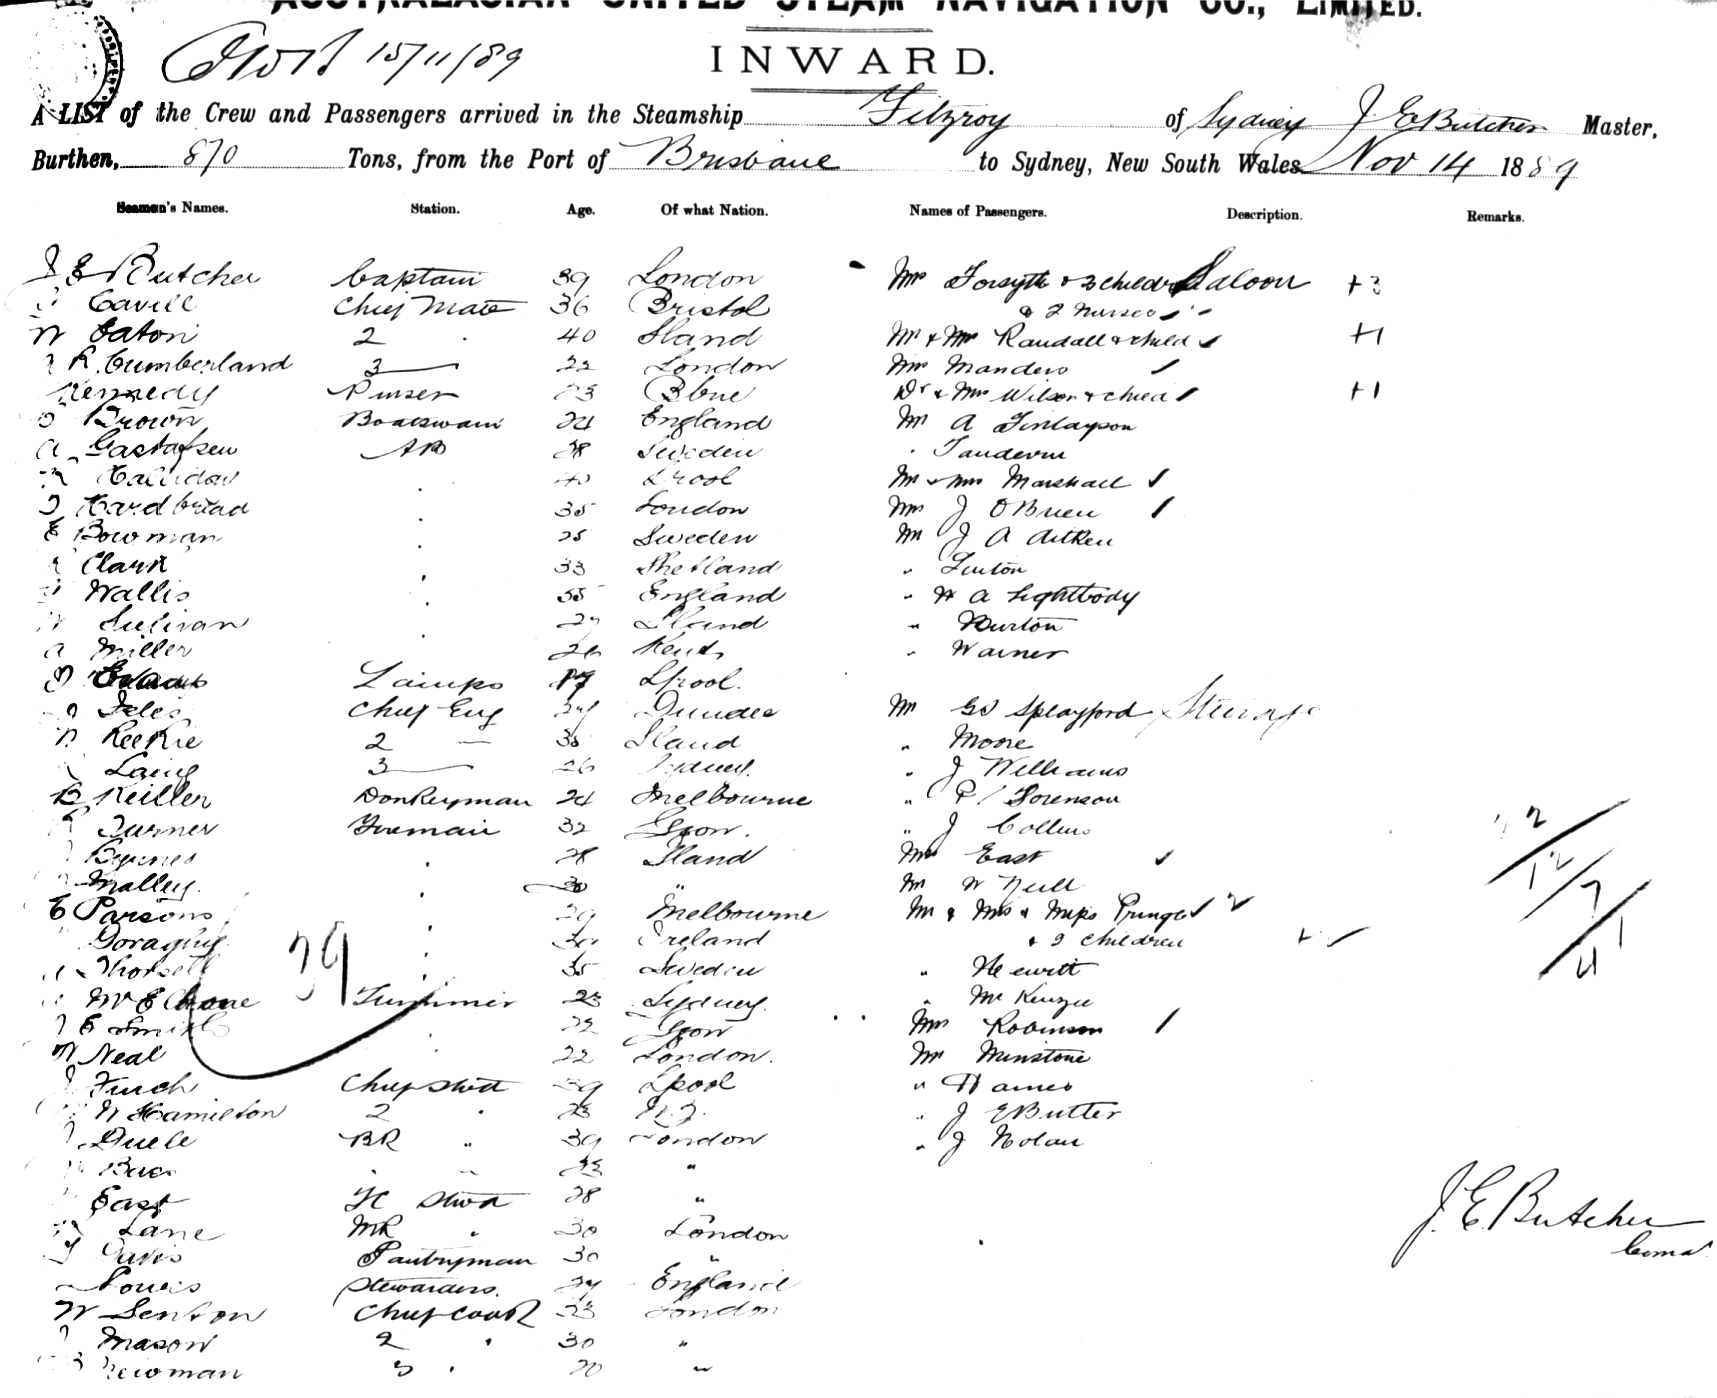 AUSTRALASIAN UNITED STEAM NAVIGATION CO., LIMITED.
15/11/89
INWARD.
A LIST of the Crew and Passengers arrived in the Steamship Fitzroy of Sydney J E Butcher Master,
Burthen, 870 Tons, from the Port of Brisbane to Sydney, New South Wales Nov 14 1889
Seamen's Names. Station. Age. Of what Nation. Names of Passengers. Description. Remarks.
J E Butcher Captain 39 London Mrs Forsyth & 3 children Saloon +3
Cavill Chief Mate 36 Bristol & 2 Nurses
W Eaton 2 40 Iland Mr & Mrs Randall & child +1
R. Cumberland 3 22 London Mrs Manders
Kennedy Purser 23 Bbne Dr & Mrs Wilson & child +1
Brown Boatswain 24 England Mr A Finlayson
A Gustafsen AB 28 Sweden
Halliday 40 Lpool Mr & Mrs Marshall
Hardbread 35 London Mrs J OBrien
E Bowman 25 Sweden Mr J A Aitken
Clark 33 Shetland " Fenton
Wallis 55 England " W A Lightbody
Sulivan Iland " Burton
A Miller 26 Kent " Warner
Lamps Lpool.
Chief Eng Dundee Mr Playford Steerage
Reekie 2 Iland " Moore
Laing 3 26 Sydney. " J Williams
B Keiller Donkeyman 24 Melbourne " P Sorenson
Turner Fireman 32 " J Collins
Byrnes 28 Iland Mrs East
Malley. 30 " Mr W Neill
E Parsons 29 Melbourne Mr & Mrs & Miss Pringle
Ireland & 2 children
Thorsell 35 Sweden " Hewitt
McElhone Trimmer 23 Sydney. " McKenzie
E Smith 22 Mrs Robinson
W Neal 22 London. Mr Minstone
39
Finch Chief Stwd 39 Lpool " Hames
W Hamilton 2 23 N.Z. " J E Butler
Duell BR " 39 London " J Nolan
23 "
East FC Stwd 28 "
Lane MR " 30 London
Davis Pantryman 30 "
Louis Stewardess. England
W Senton Chief Cook 23 London
Mason 2 " 30 "
Newman 3 " 20 "
J. E. Butcher